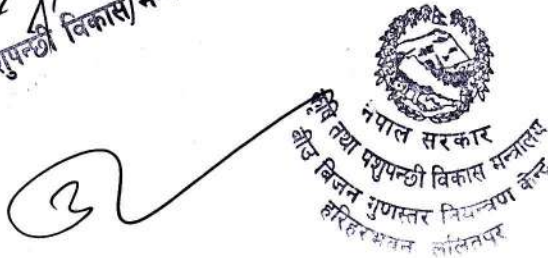 विकास
नेपाल सरकार
कृषि तथा पशुपन्छी विकास मन्त्रालय
बीउ बिजन गुणस्तर नियन्त्रण केन्द्र
हरिहरभवन ललितपुर